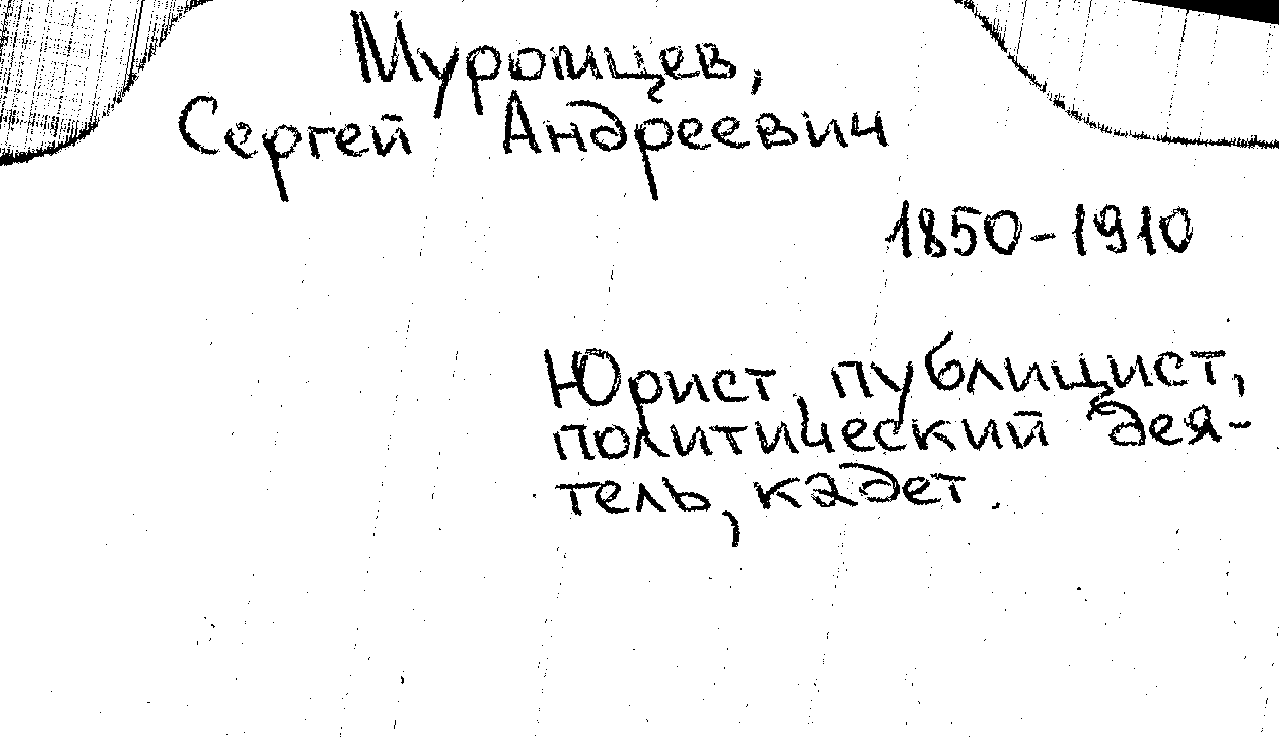 Муромцев,
Сергей Андреевич
1850-1910
Юрист, публицист,
политический дея-
тель, кадет.